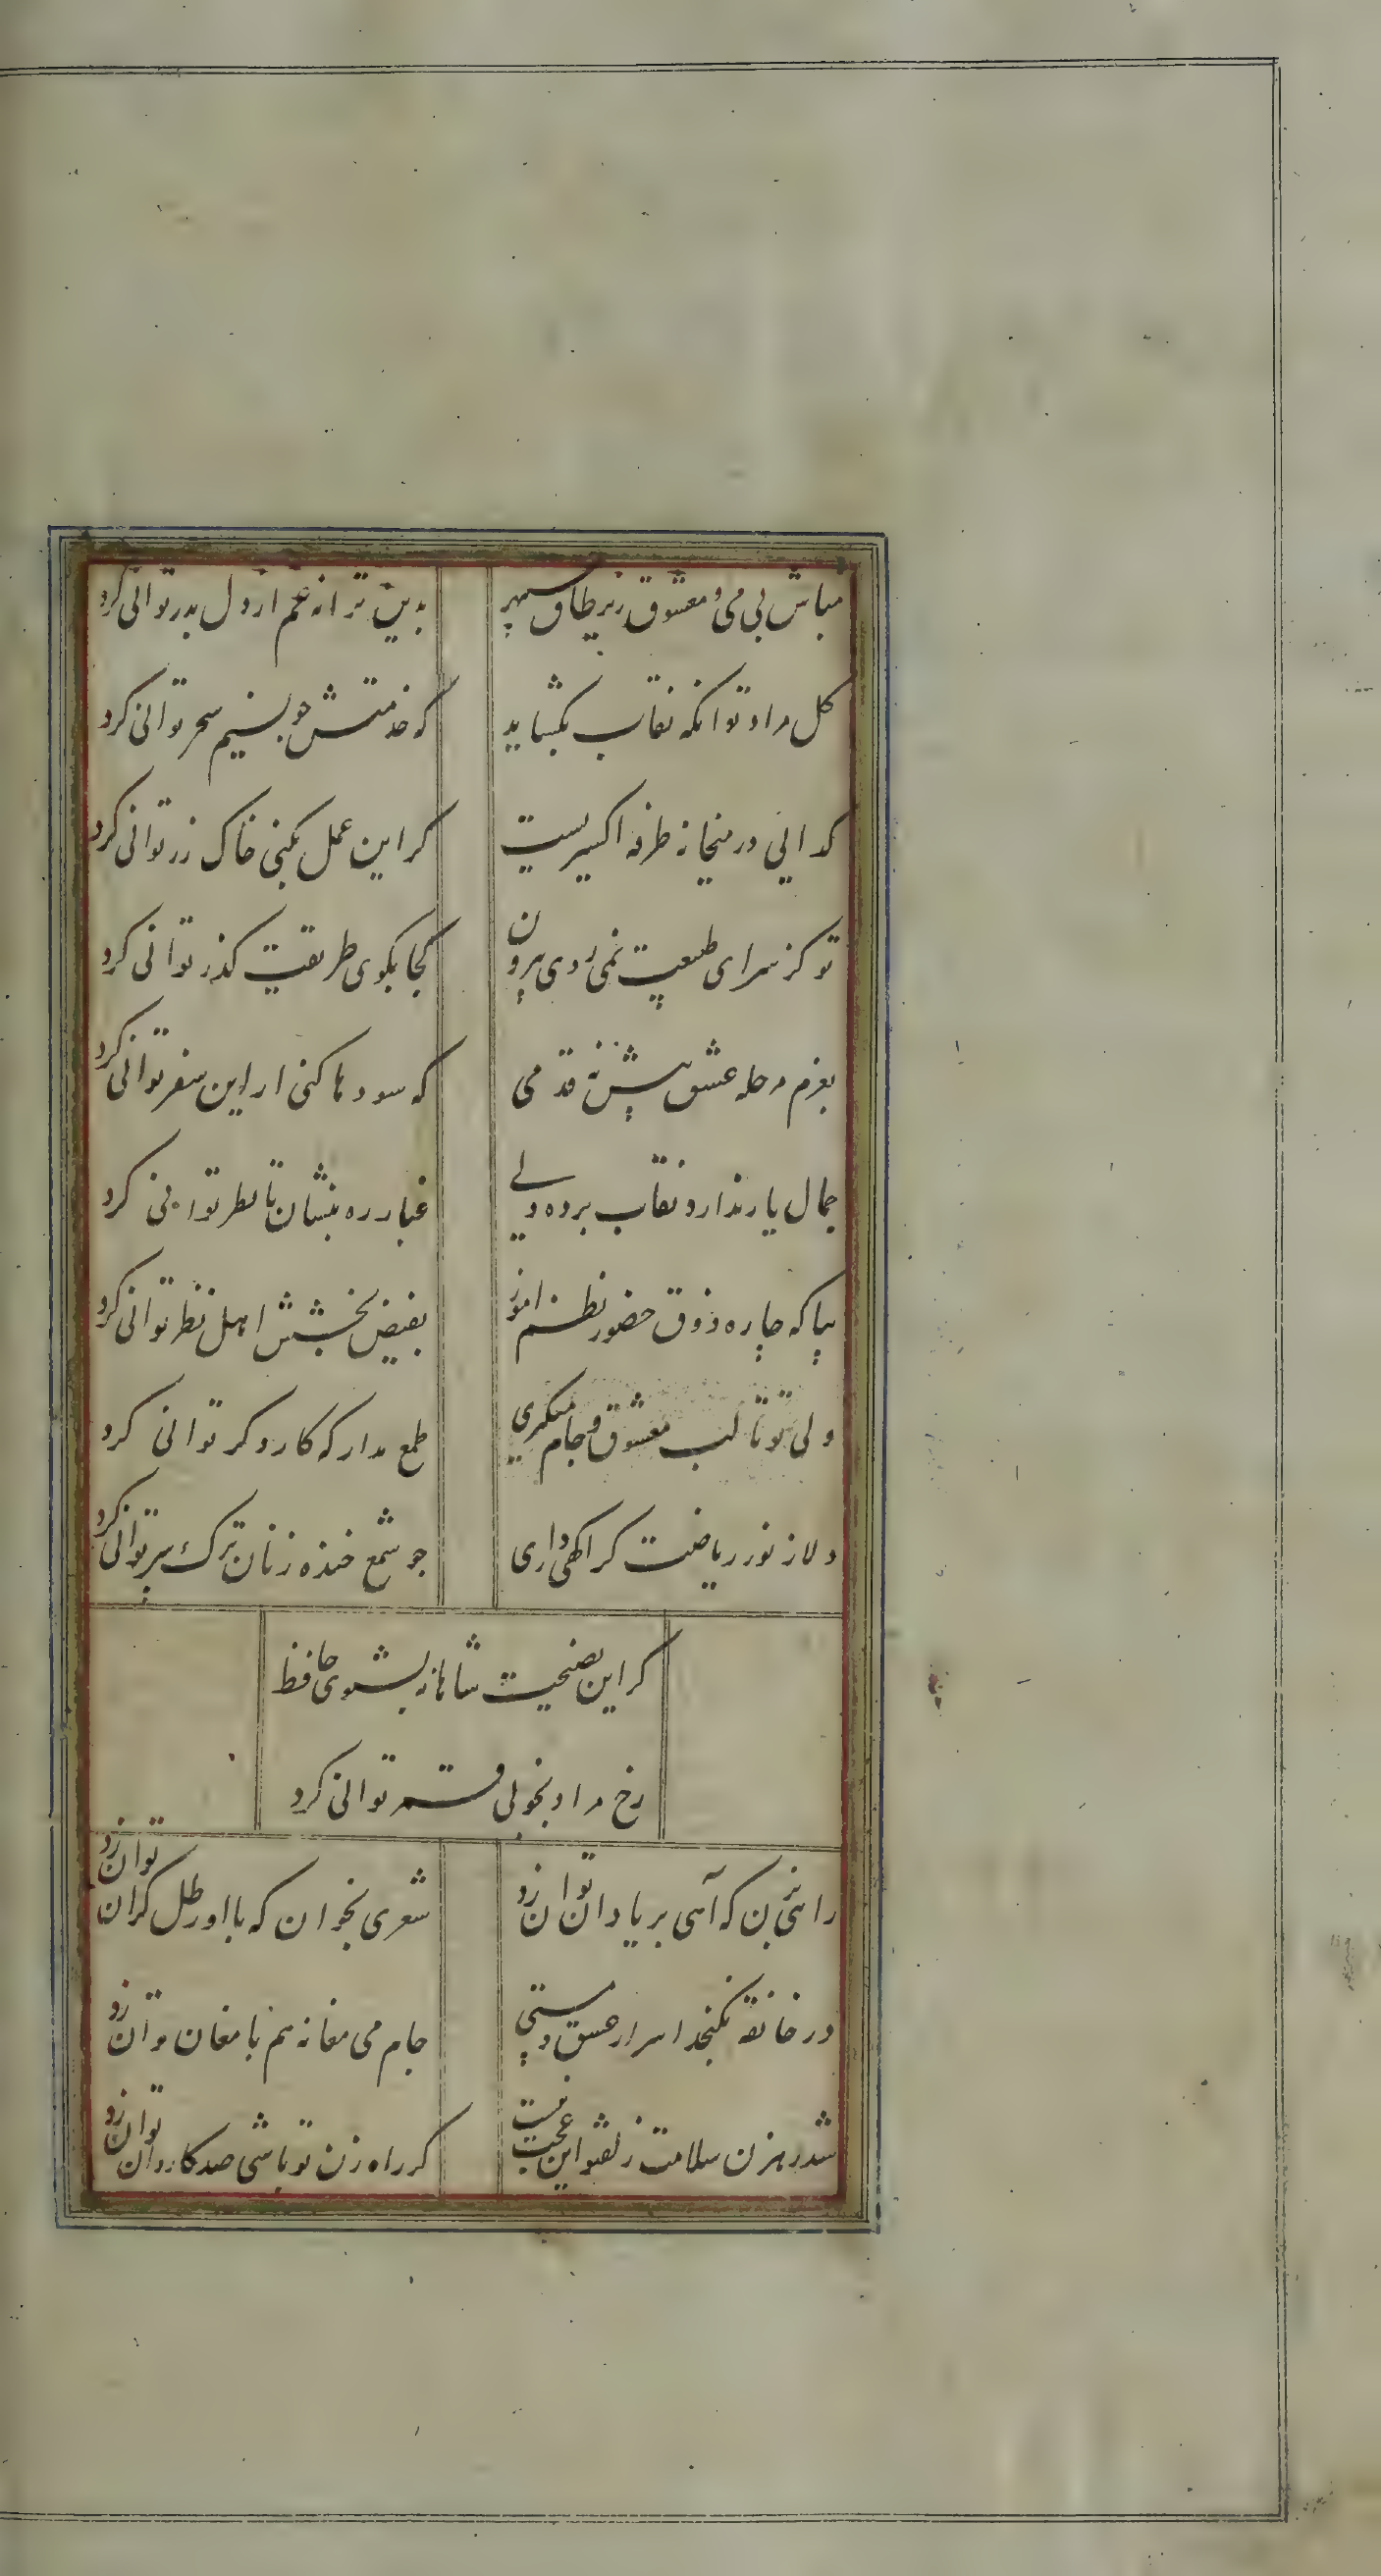 مباش بی می و معشوق زیر طاق سپهر
بدین ترانه غم از دل بدر توانی کرد
کل مراد تو انکه نقاب بکشاید
که خدمتش جو نسیم سحر توانی کرد
کدایی در میخانه طرفه اکسیریست
کر این عمل بکنی خاک زر توانی کرد
تو کز سرای طبیعت نمی روی بیرون
کجا بکوی طریقت کذر توانی کرد
بعزم مرحله عشق پیش نه قدمی
که سودها کنی ار این سفر توانی کرد
جمال یار ندارد نقاب برده ولی
غبار ره بنشان تا نظر توانی کرد
بیا که چاره ذوق حضور نظم امور
بفیض بخشش اهل نظر توانی کرد
ولی تو تا لب معشوق و جام میکیری
طمع مدار که کار دکر توانی کرد
دلا ز نور ریاضت کر اکهی داری
جو شمع خنده زنان ترک سر توانی کرد
کر این نصیحت شاهانه بشنوی حافظ
رخ مراد بخوبی قمر توانی کرد
راهی بزن که آهی بر یاد ان توان زد
شعری بخوان که با او رطل کران توان زد
در خانقه نکنجد اسرار عشق و مستی
جام می مغانه هم با مغان توان زد
شد رهزن سلامت زلف تو این عجب نیست
کر راه زن تو باشی صد کاروان توان زد